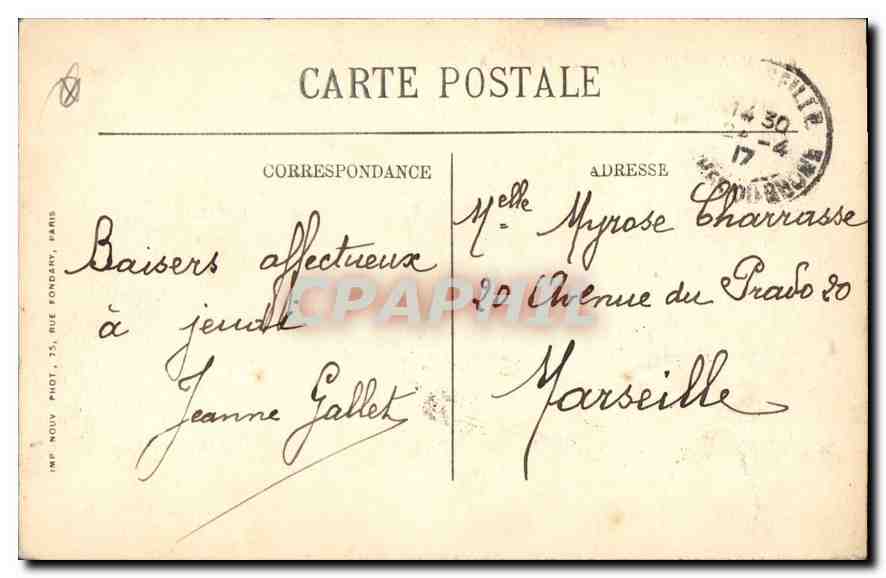 CARTE POSTALE
CORRESPONDANCE
ADRESSE
Baisers affectueux
à jeudi
Jeanne Gallet
Melle Myrose Charrasse
20 Avenue du Prado 20
Marseille
14 30
-4
17
IMP. NOUV. PHOT., 75, RUE FONDARY, PARIS
CPAPHIL